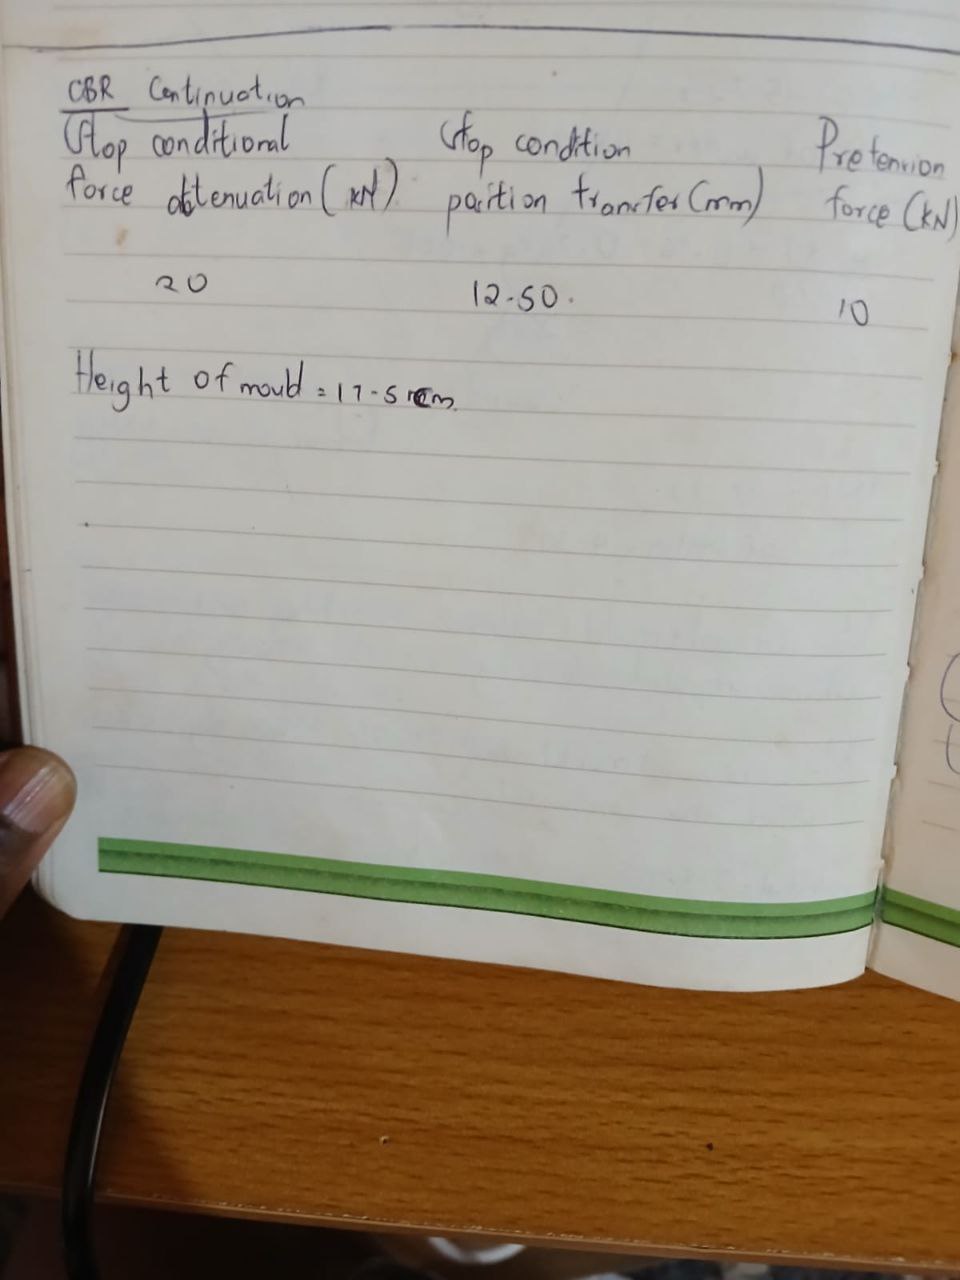 CBR Continuation
Stop conditional
force attenuation (kN)
Stop condition
position transfer (mm)
Pretension
force (kN)
20
12.50.
10
Height of mould = 17.5 cm